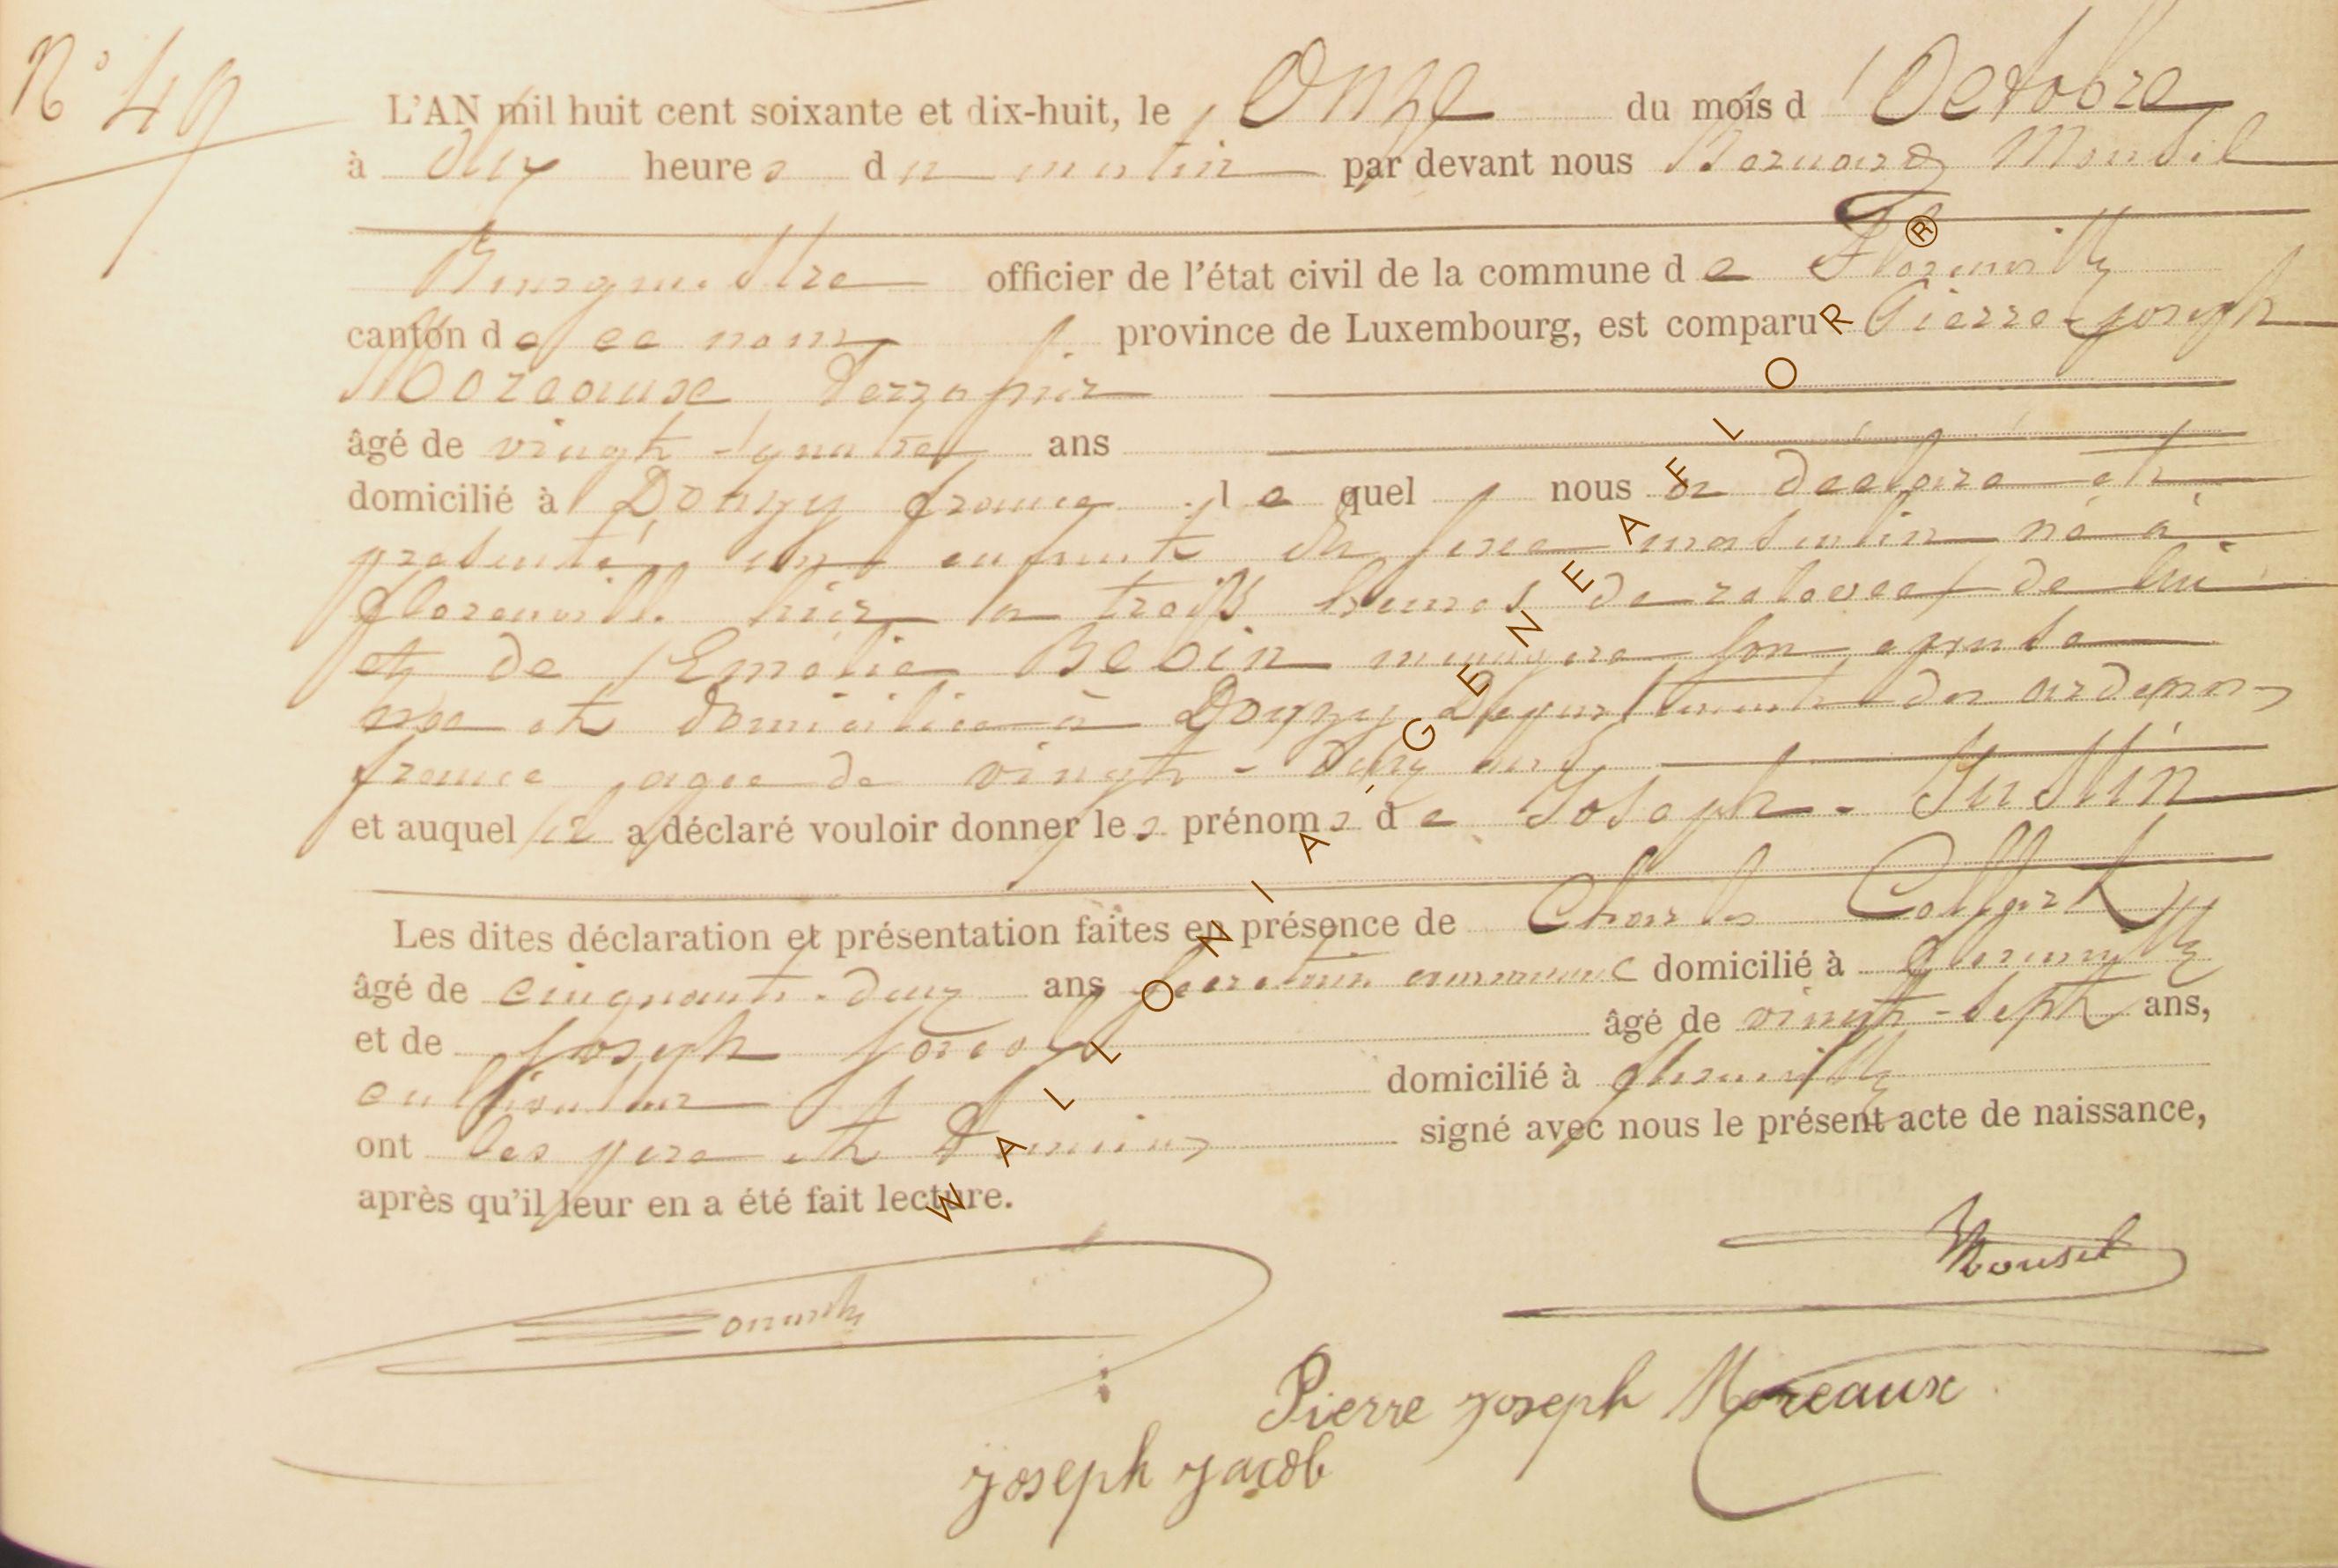 N° 49
L'AN mil huit cent soixante et dix-huit, le Onze du mois d'Octobre
à dix heures du matin par devant nous Bernard Mousel
Bourgmestre officier de l'état civil de la commune de Florenville
canton de ce nom province de Luxembourg, est comparu Pierre-Joseph
Moreaux
âgé de vingt-quatre ans
domicilié à Douzy france lequel nous a déclaré et
présenté un enfant du sexe masculin né à
florenville hier à trois heures de relevée de lui
et de Emélie Bloin ménagère son épouse
née et domiciliée à Douzy Département des ardennes
france agée de vingt-deux ans
et auquel il a déclaré vouloir donner les prénoms de Joseph-Justin
Les dites déclaration et présentation faites en présence de Charles Collart
âgé de cinquante-deux ans domicilié à florenville
et de Joseph Jacob âgé de vingt-sept ans,
cultivateur domicilié à florenville
ont les père et témoins signé avec nous le présent acte de naissance,
après qu'il leur en a été fait lecture.
Mousel
Pierre joseph Moreaux
joseph jacob
WALLONIA'GENEAFLOR®